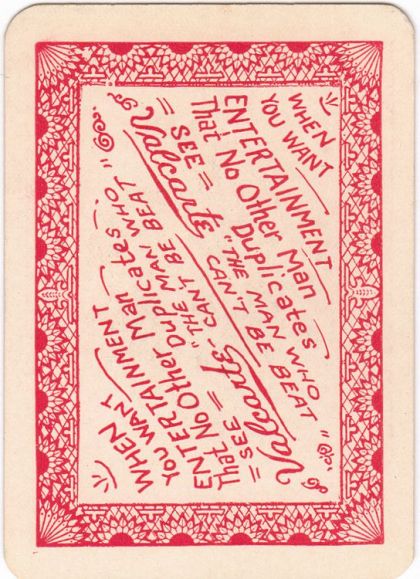 WHEN
YOU WANT
ENTERTAINMENT
That No Other Man
Duplicates
= SEE =
Valcarte
"THE MAN WHO
CAN'T BE BEAT"
WHEN
YOU WANT
ENTERTAINMENT
That No Other Man
Duplicates
= SEE =
Valcarte
"THE MAN WHO
CAN'T BE BEAT"